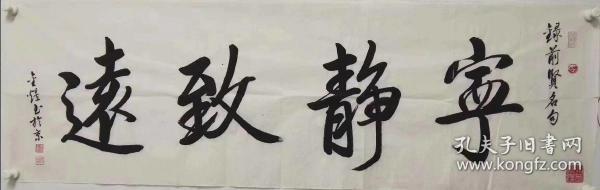 錄前賢名句
寧静致遠
书於京
孔夫子旧书网
www.kongfz.com